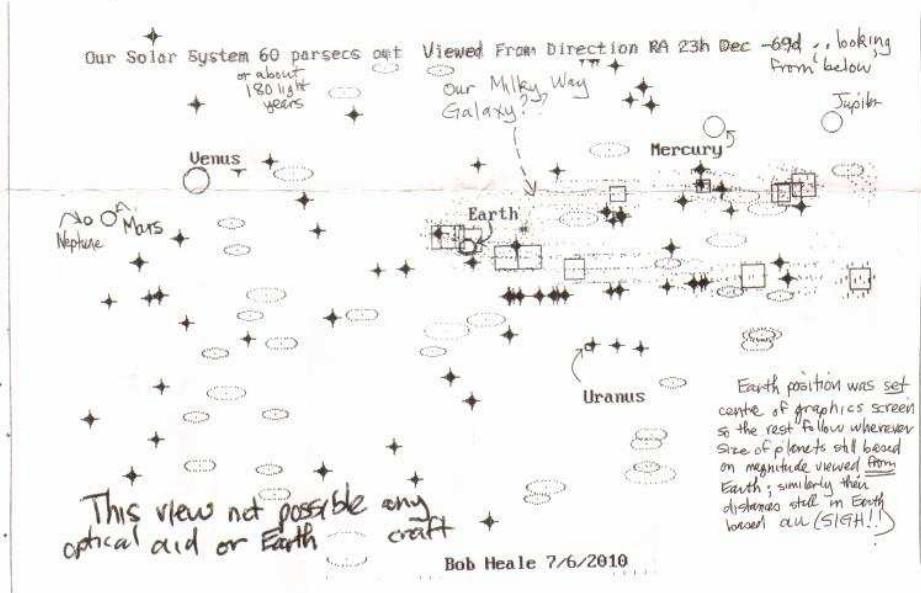 Our Solar System 60 parsecs out Viewed From Direction RA 23h Dec -69d .. looking
from below
or about
180 light
years
Our Milky Way
Galaxy??
Jupiter
Mercury
Venus
No
Neptune
Mars
Earth
Uranus
Earth position was set
centre of graphics screen
so the rest follow wherever
size of planets still based
on magnitude viewed from
Earth; similarly their
distances still in Earth
based au (SIGH!!)
This view not possible any
optical aid or Earth craft
Bob Heale 7/6/2010